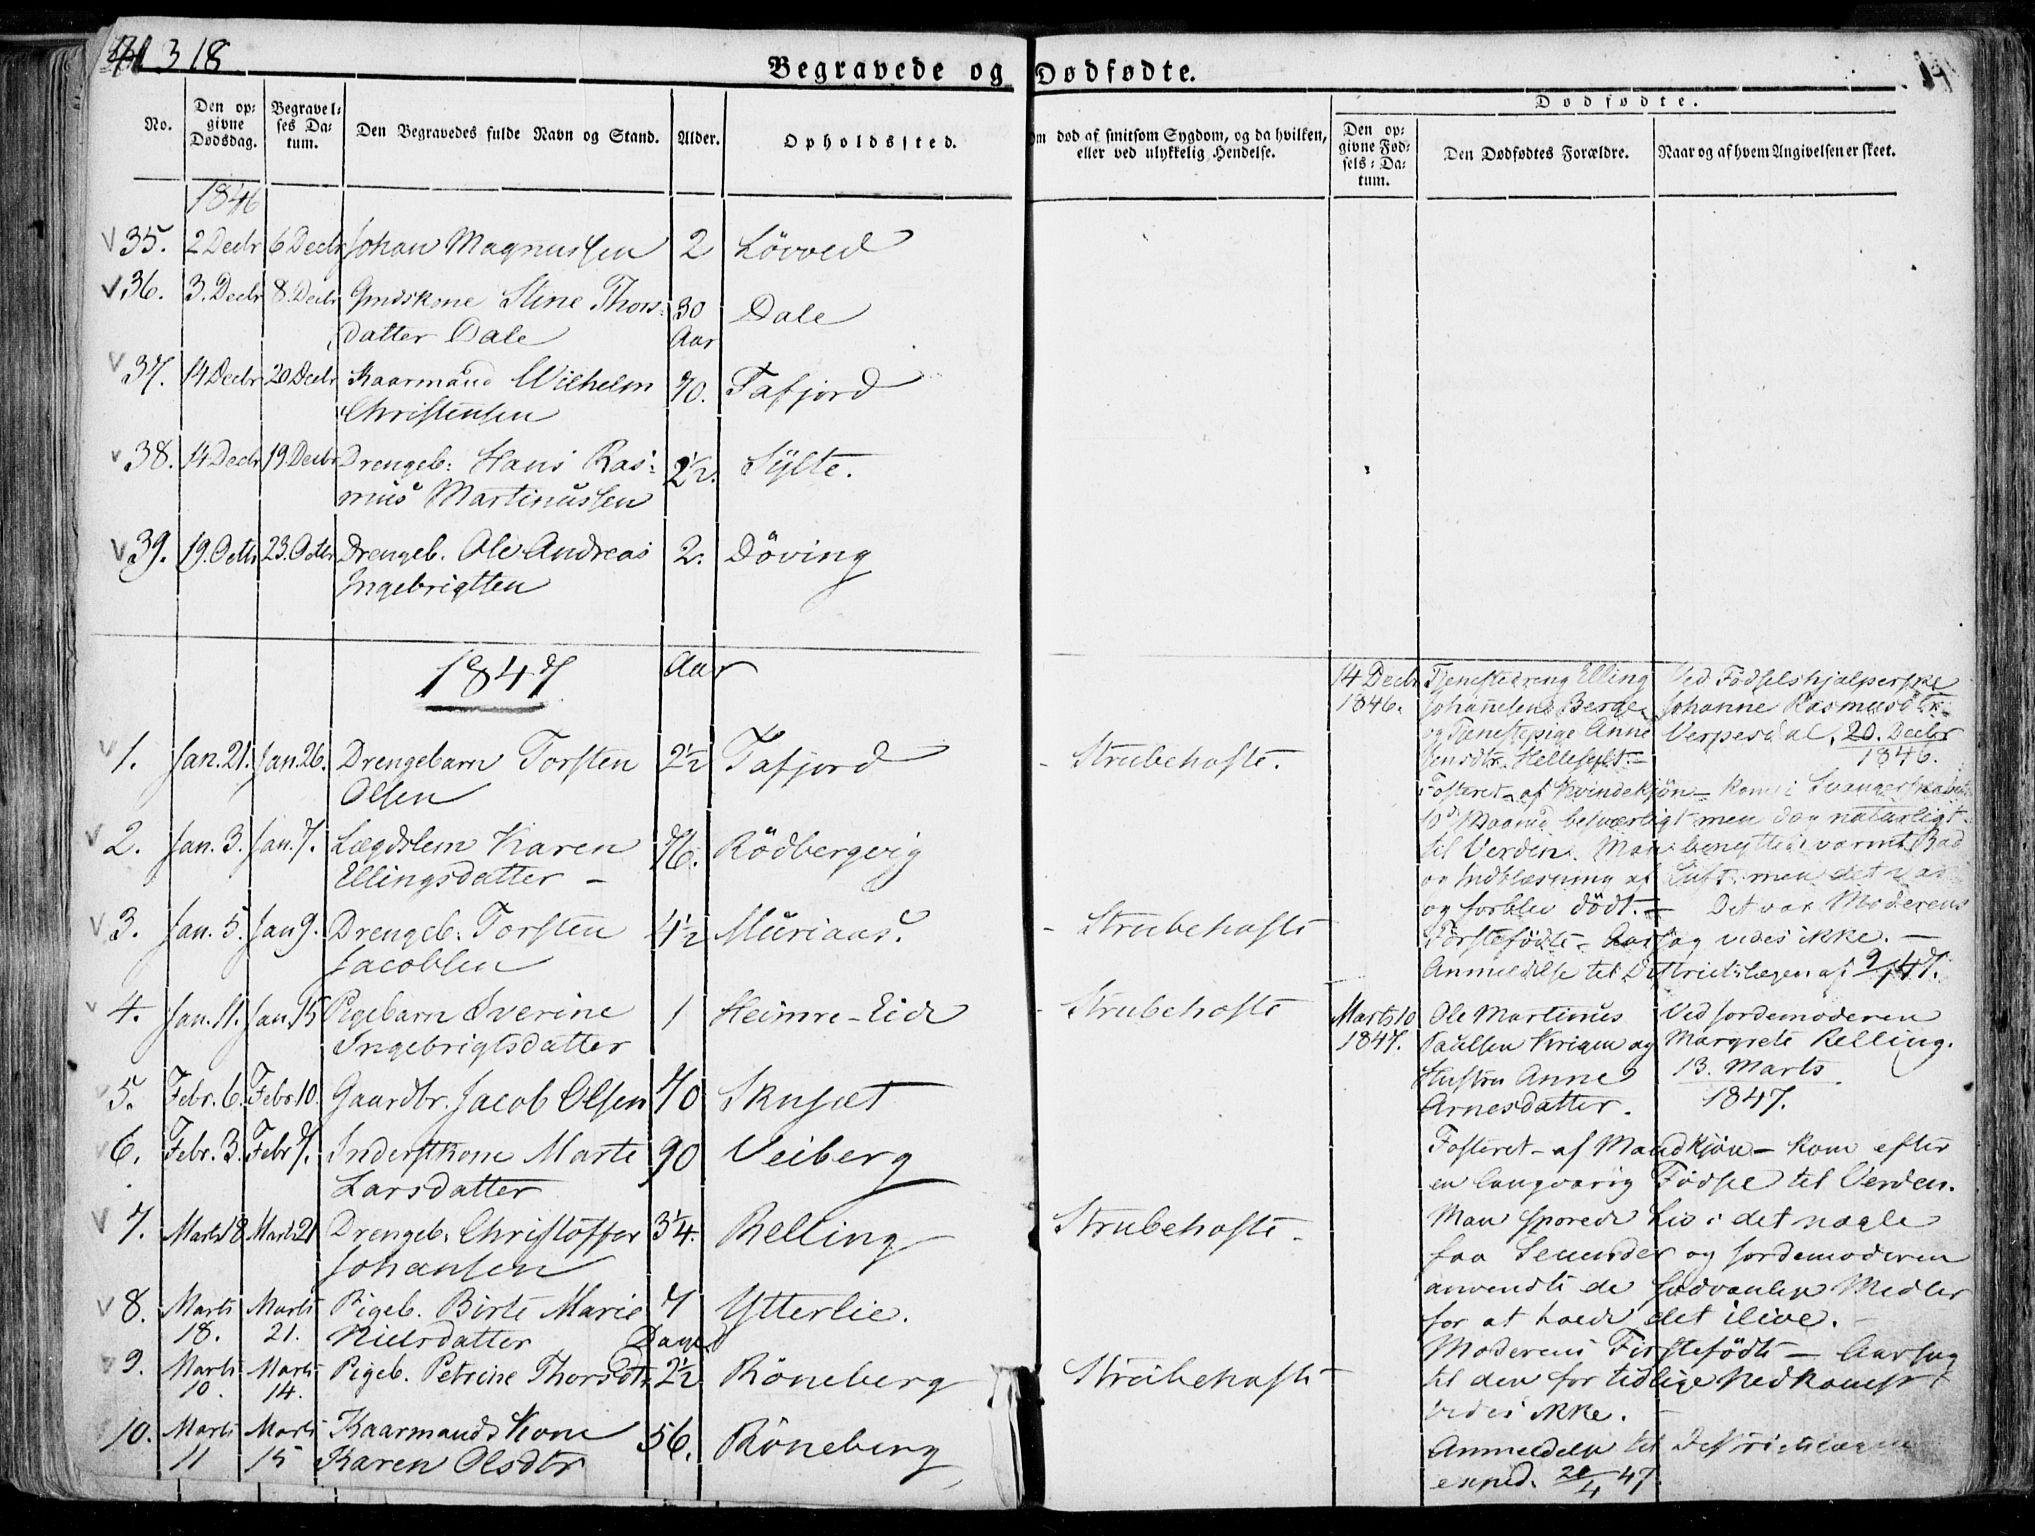 318
Begravede og Dødfødte.
No.
Den op-
givne
Dødsdag.
Begravel-
ses Da-
tum.
Den Begravedes fulde Navn og Stand.
Alder.
Opholdssted.
Om død af smitsom Sygdom, og da hvilken,
eller ved ulykkelig Hendelse.
Dødfødte.
Den op-
givne Fød-
sels-Da-
tum.
Den Dødfødtes Forældre.
Naar og af hvem Angivelsen er skeet.
1846
35. 2 Decbr 6 Decbr Johan Magnussen 2 Lövved
36. 3. Decbr 8. Decbr Gmdskone Stine Thors- 30 Dale
datter Dale Aar
37. 14 Decbr 20 Decbr Kaarmand Wilhelm 70. Tafjord
Christensen
38. 14 Decbr 19. Decbr Drengeb: Hans Ras- 2½. Sylte.
mus Martinussen
39. 19. Octbr 23. Octbr Drengeb. Ole Andreas 2. Döving
Ingebrigtsen
1847 Aar
1. Jan. 21. Jan. 26. Drengebarn Torsten 2½ Tafjord - Strubehoste.
Olsen
2. Jan. 3. Jan. 7. Lægdslem Karen 76. Rödbergvig
Ellingsdatter -
3. Jan. 5. Jan 9. Drengeb: Torsten 4½ Muriaas. - Strubehoste
Jacobsen
4. Jan. 11. Jan. 15 Pigebarn Sverine 1 Heimre-Eide - Strubehoste
Ingebrigtsdatter
5. Febr. 6. Febr. 10. Gaardbr. Jacob Olsen 70 Skuset
6. Febr. 3. Febr 7. Inderstkone Marte 90 Veiberg
Larsdatter
7. Marts 18 Marts 21 Drengeb. Christoffer 3¼. Relling Strubehoste -
Johansen
8. Marts Marts Pigeb. Birte Marie 7 Ytterlie.
18. 21. Nielsdatter Dage
9. Marts Marts Pigeb. Petrine Thorsdtr 2½ Röneberg Strubehoste
10. 14.
10. Marts Marts Kaarmands Kone 56. Röneberg
11 15 Karen Olsdtr
14 Decbr Tjenestedreng Elling Ved Födselshjelperske
1846. Johannesen Berge Johanne Rasmusdtr.
og Tjenestepige Anne Verpesdal, 20. Decbr
Jensdtr. Hellesylt. - 1846.
Fosteret - af Kvindekjön - kom i Svangerskabets
10d Maaned besværligt men dog naturligt
til Verden. Man benyttede varmt Bad
og Indblæsning af Luft men det var
og forblev dödt. - Det var Moderens
Förstefödte - Aarsag vides ikke. -
Anmeldelse til Districtslægen af 9/1 47.
Marts 10 Ole Martinus Ved Jordemoderen
1847. Paulsen og Margrete Relling.
Hustru Anne 13. Marts
Arnesdatter. 1847.
Fosteret - af Mandkjön - kom efter
en langvarig Födsel til Verden.
Man sporede Liv i det nogle
faa Secunder og Jordemoderen
anvendte de sædvanlige Midler
for at holde det ilive. -
Moderens Förstefödte - Aarsag
til den for tidlige Nedkomst
vides ikke. -
Anmeldelse til Districtslægen
exped. 20/4 47.